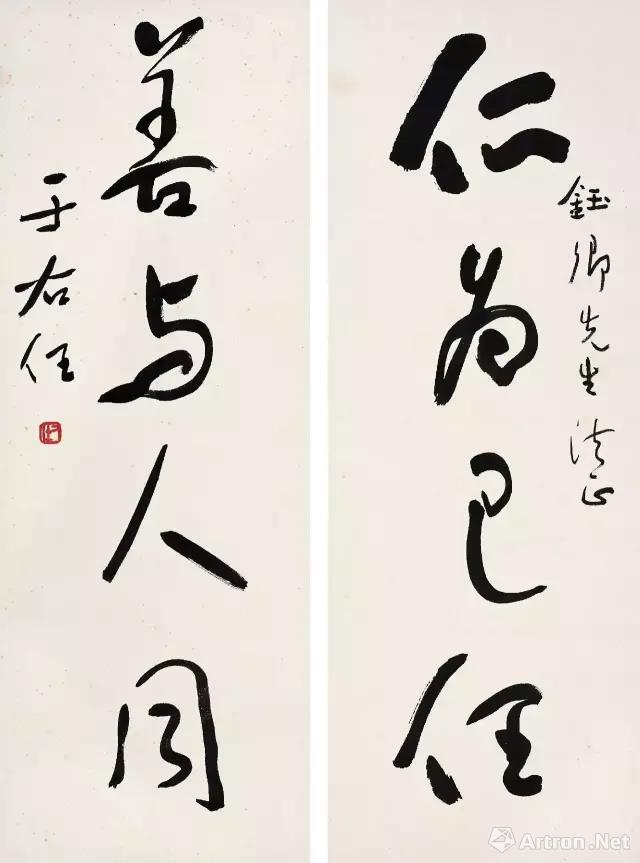 仁为己任
钰卿先生法正
善与人同
于右任
Artron.Net